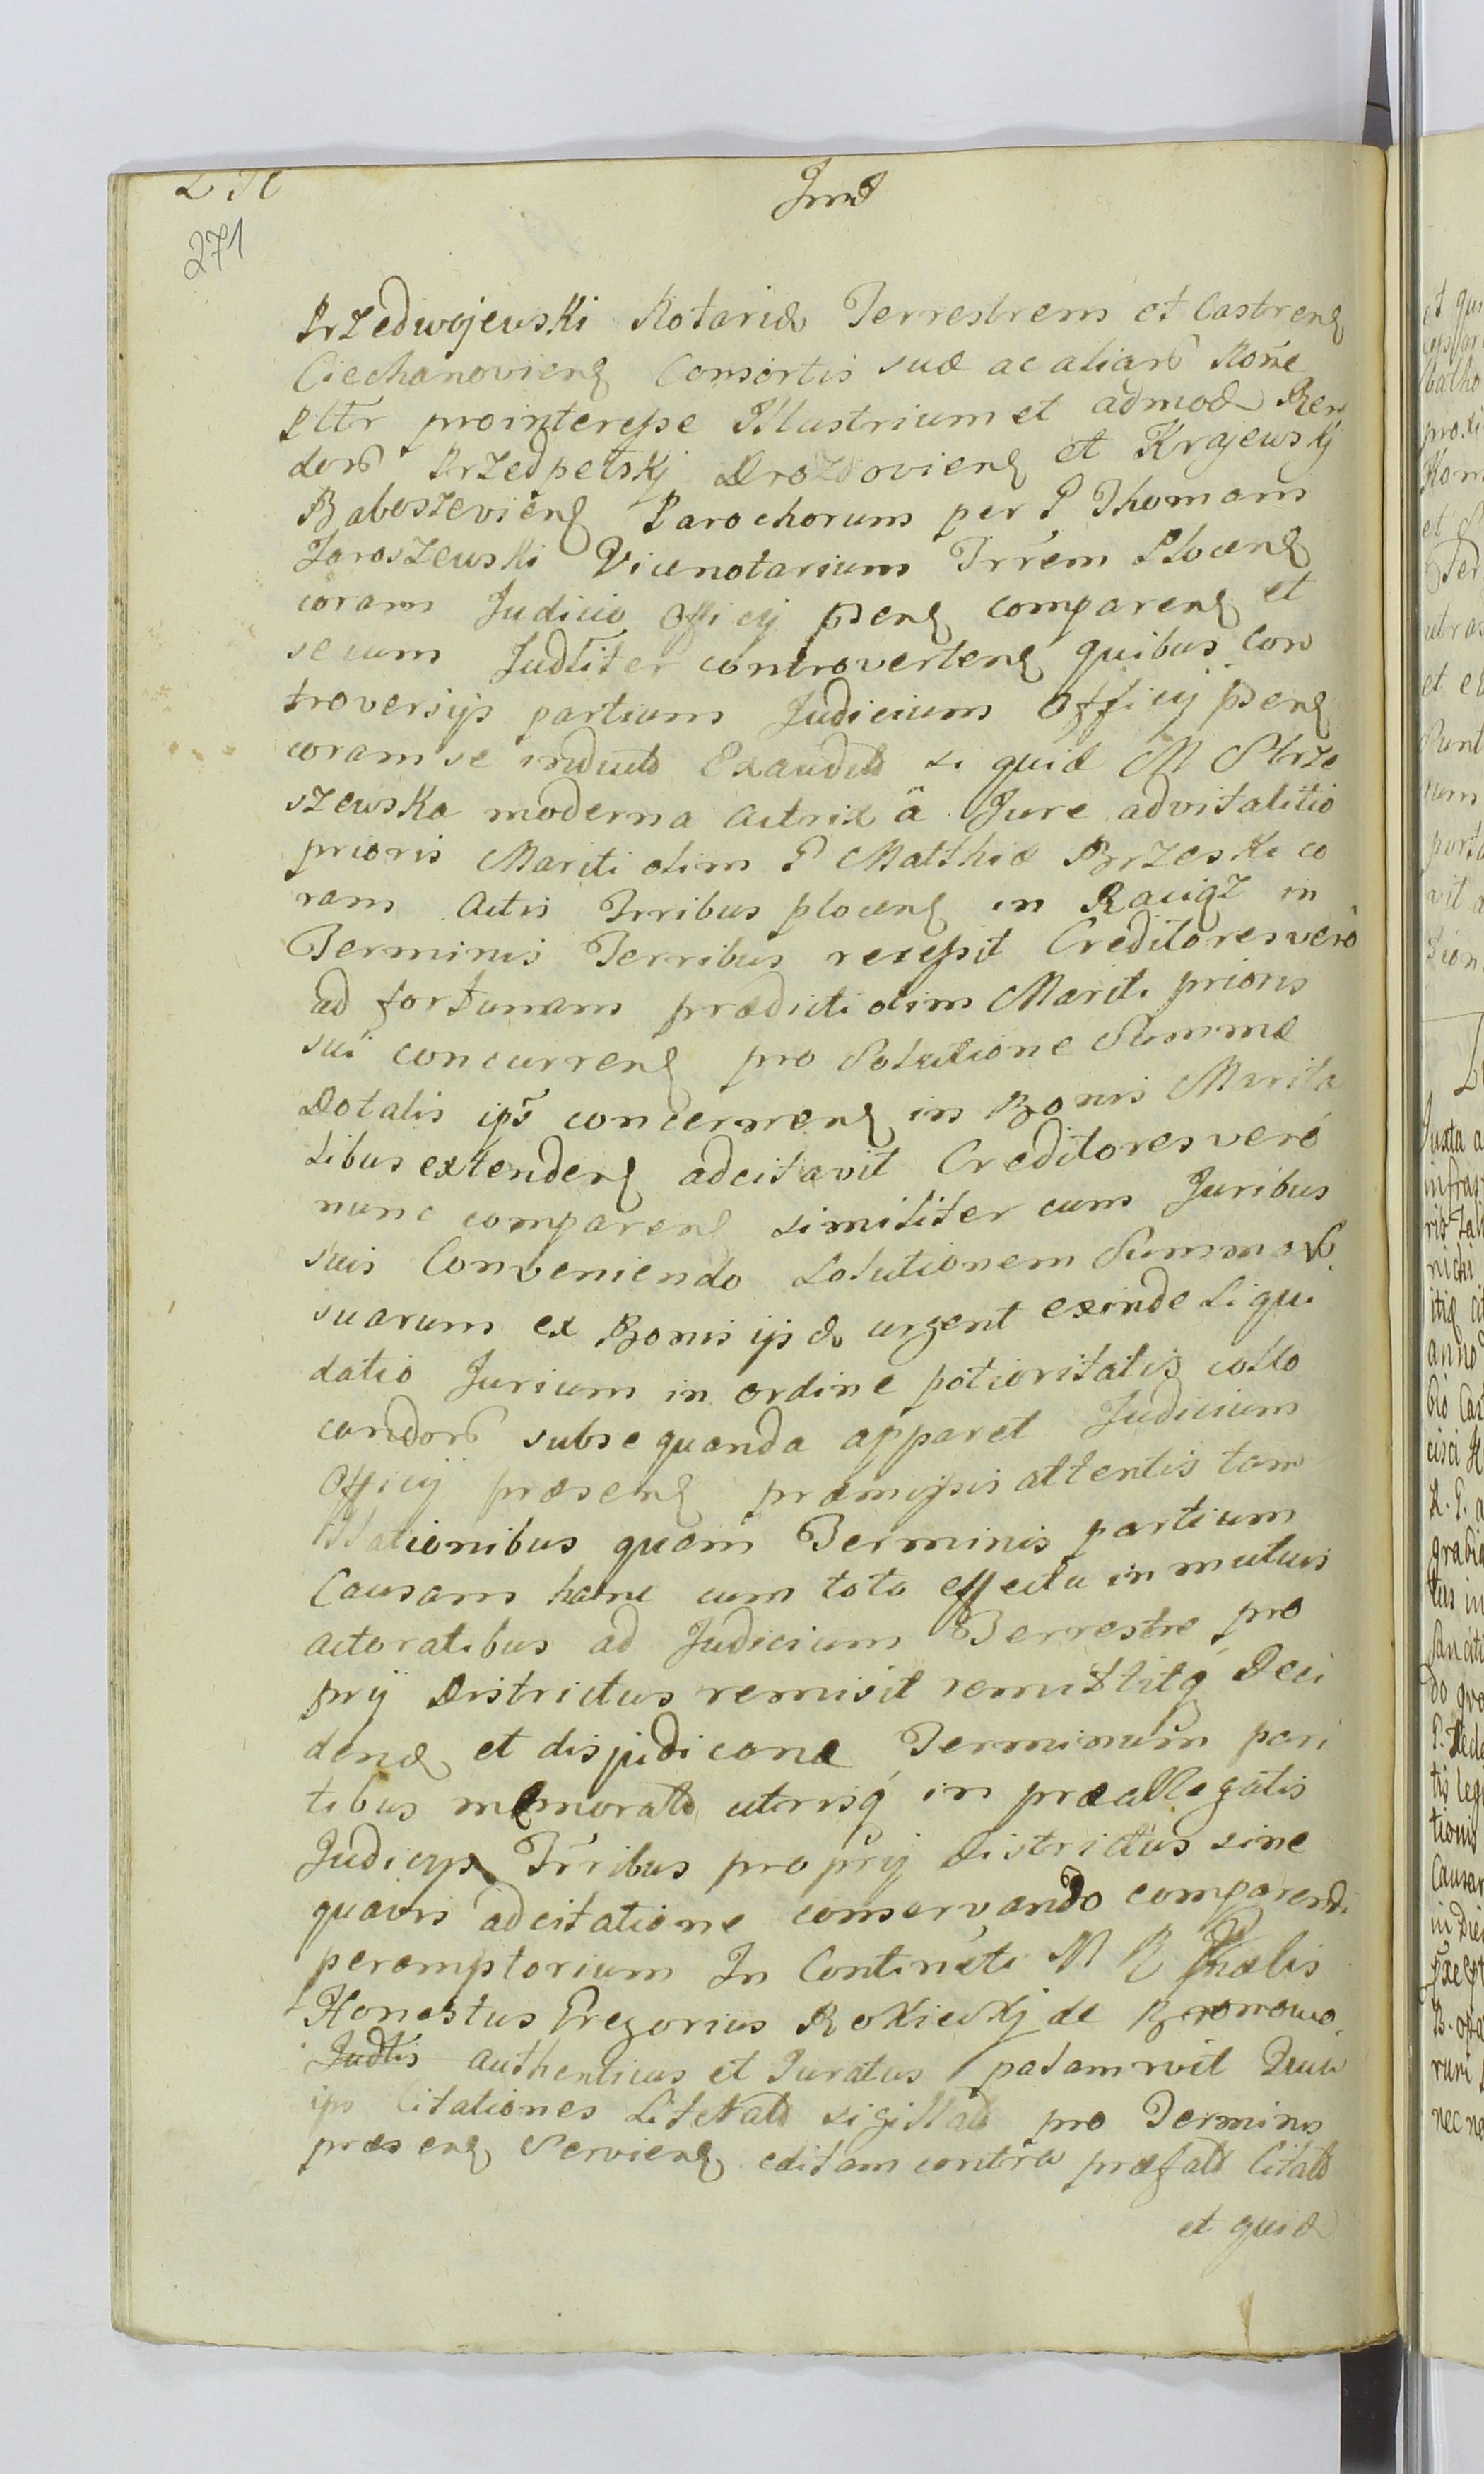 271
Przedwojewski Notarid Terrestrem et Castren
Ciechanovien Consortis suæ ac aliar Rone
pltr prointeresse Illustrium et admod Rev
dor Przedpełskj Drozdovien et Krajewskj
Baboszevien Parochorum per P Thomam
Jaroszewski Vicenotarium Trrem Plocen
coram Judicio Officij psen comparen et
secum Judltiter controverten quibus Con
troversijs partium Judicium Officij psen
coram se induct Exaudit si quid M Strze
szewska moderna Actrix â Jure advitalitio
prioris Mariti olim P Matthiæ Brzeski co
ram Actis Trribus plocen in Raciąz in
Terminis Terribus recessit Creditores vero
ad fortunam prædicti olim Mariti prioris
sui concurren pro Solutione Summæ
Dotalis ips concernen in Bonis Marita
libus extenden adcitavit Creditores vero
nunc comparen similiter cum Juribus
suis Conveniendo Solutionem Summar
suarum ex Bonis ijsd urgent exinde Liqui
datio Jurium in ordine potioritatis collo
candor subsequenda apparet Judicium
Officij præsen præmissis attentis tam
Citationibus quam Terminis partium
Causam hanc cum toto effectu in mutuis
actoratibus ad Judicium Terrestre pro
prij Districtus remisit remittitq Deci
dend et disjudicand Terminum par
tibus memorat utrisq in præallegatis
Judicijs Trribus proprij districtus sine
quavis adcitatione conservando comparendi
peremptorium In Continēti M R Thælis
Honestus Gregorius Rokickj de Bromowo
Judtis authenticus et Juratus palam rvit Quia
ips Citationes Literat sigillat pro Terminis
præsen Servien editam contra præfat Citat
et quid